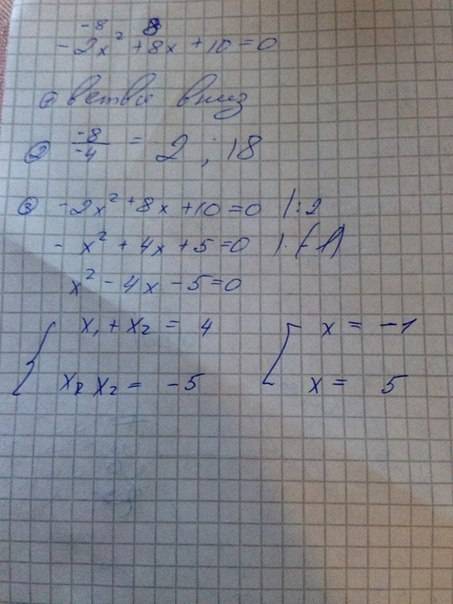 -8 8
-2x² +8x +10=0
① ветви вниз
② -8/-4 = 2 ; 18
③ -2x² +8x +10=0 |:2
- x² + 4x +5=0 |·(-1)
x² - 4x - 5=0
{ x₁ + x₂ = 4 [ x = -1
x₁ x₂ = -5 x = 5